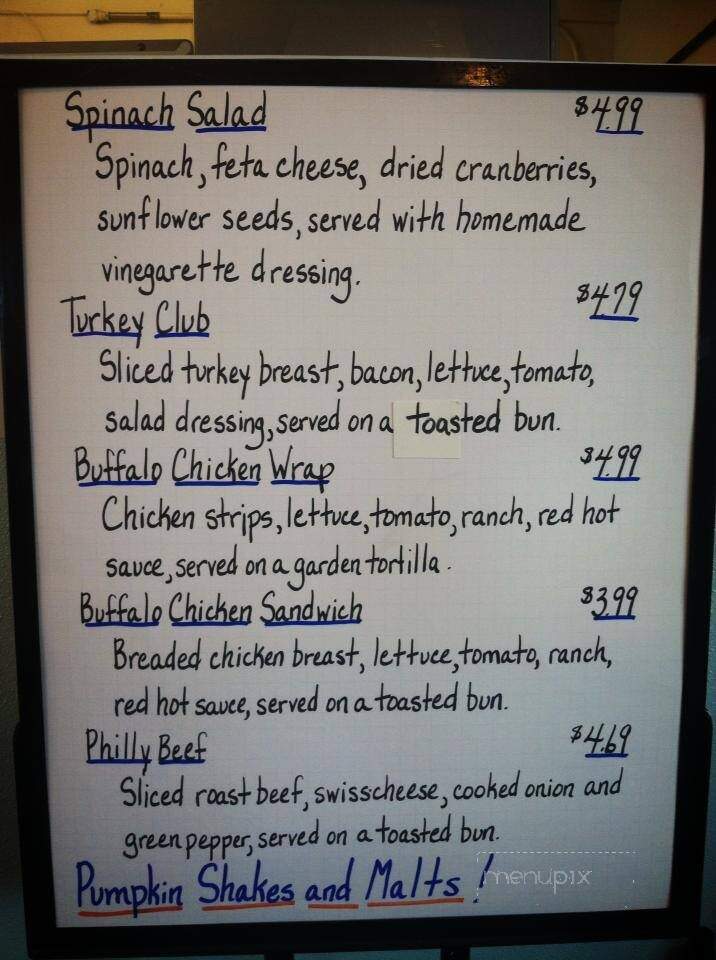 Spinach Salad $4.99
Spinach, feta cheese, dried cranberries,
sunflower seeds, served with homemade
vinegarette dressing.
Turkey Club $4.79
Sliced turkey breast, bacon, lettuce, tomato,
salad dressing, served on a toasted bun.
Buffalo Chicken Wrap $4.99
Chicken strips, lettuce, tomato, ranch, red hot
sauce, served on a garden tortilla.
Buffalo Chicken Sandwich $3.99
Breaded chicken breast, lettuce, tomato, ranch,
red hot sauce, served on a toasted bun.
Philly Beef $4.69
Sliced roast beef, swiss cheese, cooked onion and
green pepper, served on a toasted bun.
Pumpkin Shakes and Malts!
menupix